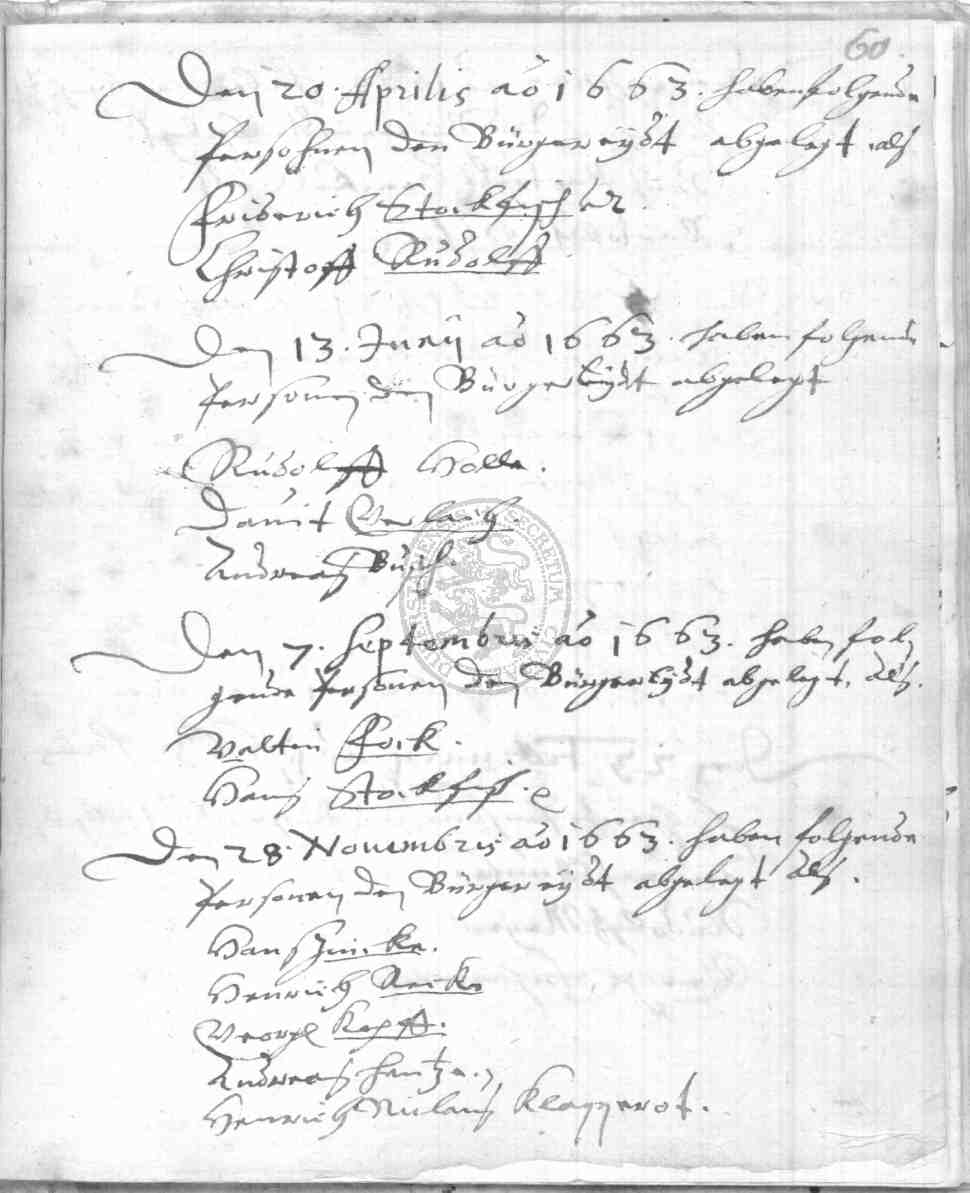 60.
Den 20. Aprilis aō 1663. haben folgende
Persohnen den Bürgereydt abgelegt als
Friderich Stockfisch
Christoff Rudolff
Den 13. Junij aō 1663. haben folgende
Personen den Bürgereydt abgelegt
Rudolff Holle.
Davit Gerlach.
Andreas Busch.
Den 7. Septembris aō 1663. haben fol
gende Personen den Bürgereydt abgelegt, als.
Valtin Fock.
Hans Stockfisch.
Den 28. Novembris aō 1663. haben folgende
Personen den Bürgereydt abgelegt als.
Hans
Henrich Recke
Georg Kopff.
Andreas Hentze.
Henrich Niclaus Klapperot.
SECRETUM